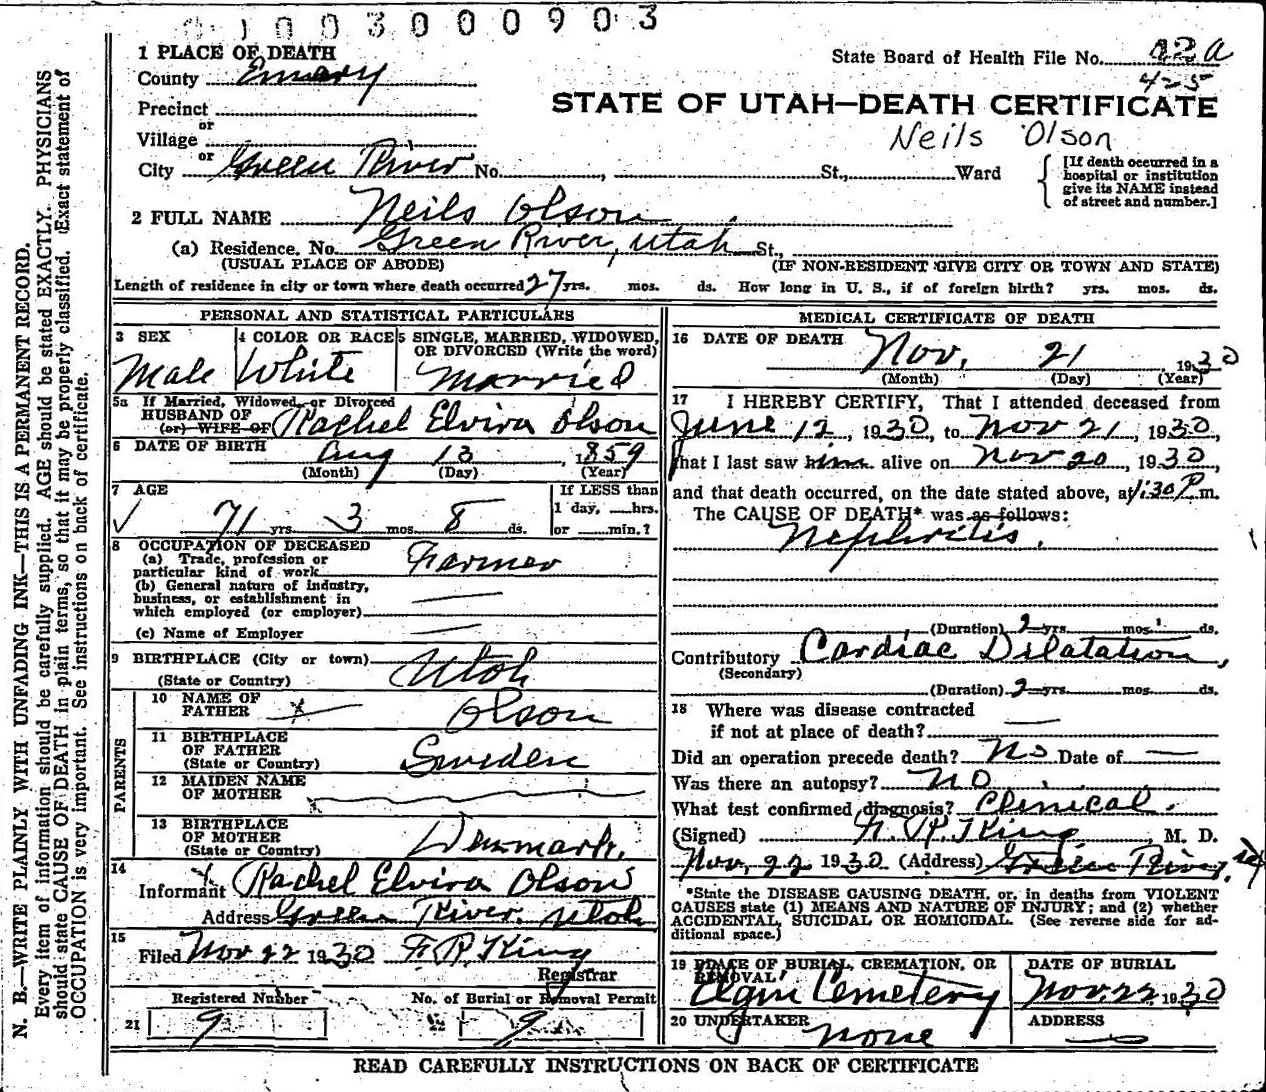 0100300903
1 PLACE OF DEATH
State Board of Health File No. 42a
County Emery
4-25
Precinct
STATE OF UTAH—DEATH CERTIFICATE
or
Village
Neils Olson
or
City Green River No. , St., Ward
[If death occurred in a hospital or institution give its NAME instead of street and number.]
2 FULL NAME Neils Olson
(a) Residence. No. Green River, Utah St.,
(USUAL PLACE OF ABODE) (IF NON-RESIDENT GIVE CITY OR TOWN AND STATE)
Length of residence in city or town where death occurred 27 yrs. mos. ds. How long in U. S., if of foreign birth? yrs. mos. ds.
PERSONAL AND STATISTICAL PARTICULARS
3 SEX
Male
4 COLOR OR RACE
White
5 SINGLE, MARRIED, WIDOWED,
OR DIVORCED (Write the word)
Married
5a If Married, Widowed, or Divorced
HUSBAND OF
(or) WIFE OF Rachel Elvira Olson
6 DATE OF BIRTH Aug 13 1859
(Month) (Day) (Year)
7 AGE
71 yrs. 3 mos. 8 ds.
If LESS than
1 day, hrs.
or min.?
8 OCCUPATION OF DECEASED
(a) Trade, profession or
particular kind of work Farmer
(b) General nature of industry,
business, or establishment in
which employed (or employer)
(c) Name of Employer
9 BIRTHPLACE (City or town)
(State or Country) Utah
PARENTS
10 NAME OF
FATHER x Olson
11 BIRTHPLACE
OF FATHER
(State or Country) Sweden
12 MAIDEN NAME
OF MOTHER
13 BIRTHPLACE
OF MOTHER
(State or Country) Denmark.
14
Informant Rachel Elvira Olson
Address Green River, Utah
15
Filed Nov 22 1930 F. R. King
Registrar
Registered Number No. of Burial or Removal Permit
21 9 9
MEDICAL CERTIFICATE OF DEATH
16 DATE OF DEATH Nov. 21 1930
(Month) (Day) (Year)
17 I HEREBY CERTIFY, That I attended deceased from
June 12, 1930, to Nov 21, 1930,
that I last saw him alive on Nov 20, 1930,
and that death occurred, on the date stated above, at 1:30 P.m.
The CAUSE OF DEATH* was as follows:
Nephritis.
(Duration) 2 yrs. mos. ds.
Contributory Cardiac Dilatation,
(Secondary)
(Duration) 2 yrs. mos. ds.
18 Where was disease contracted
if not at place of death?
Did an operation precede death? No Date of
Was there an autopsy? NO
What test confirmed diagnosis? Clinical.
(Signed) F. R. King M. D.
Nov, 22 1930 (Address) Green River,
*State the DISEASE CAUSING DEATH, or, in deaths from VIOLENT
CAUSES state (1) MEANS AND NATURE OF INJURY; and (2) whether
ACCIDENTAL, SUICIDAL OR HOMICIDAL. (See reverse side for ad-
ditional space.)
19 PLACE OF BURIAL, CREMATION, OR
REMOVAL
Elgin Cemetery
DATE OF BURIAL
Nov. 22, 1930
20 UNDERTAKER
none
ADDRESS
READ CAREFULLY INSTRUCTIONS ON BACK OF CERTIFICATE
N. B.—WRITE PLAINLY WITH UNFADING INK—THIS IS A PERMANENT RECORD.
Every item of information should be carefully supplied. AGE should be stated EXACTLY. PHYSICIANS
should state CAUSE OF DEATH in plain terms, so that it may be properly classified. Exact statement of
OCCUPATION is very important. See instructions on back of certificate.